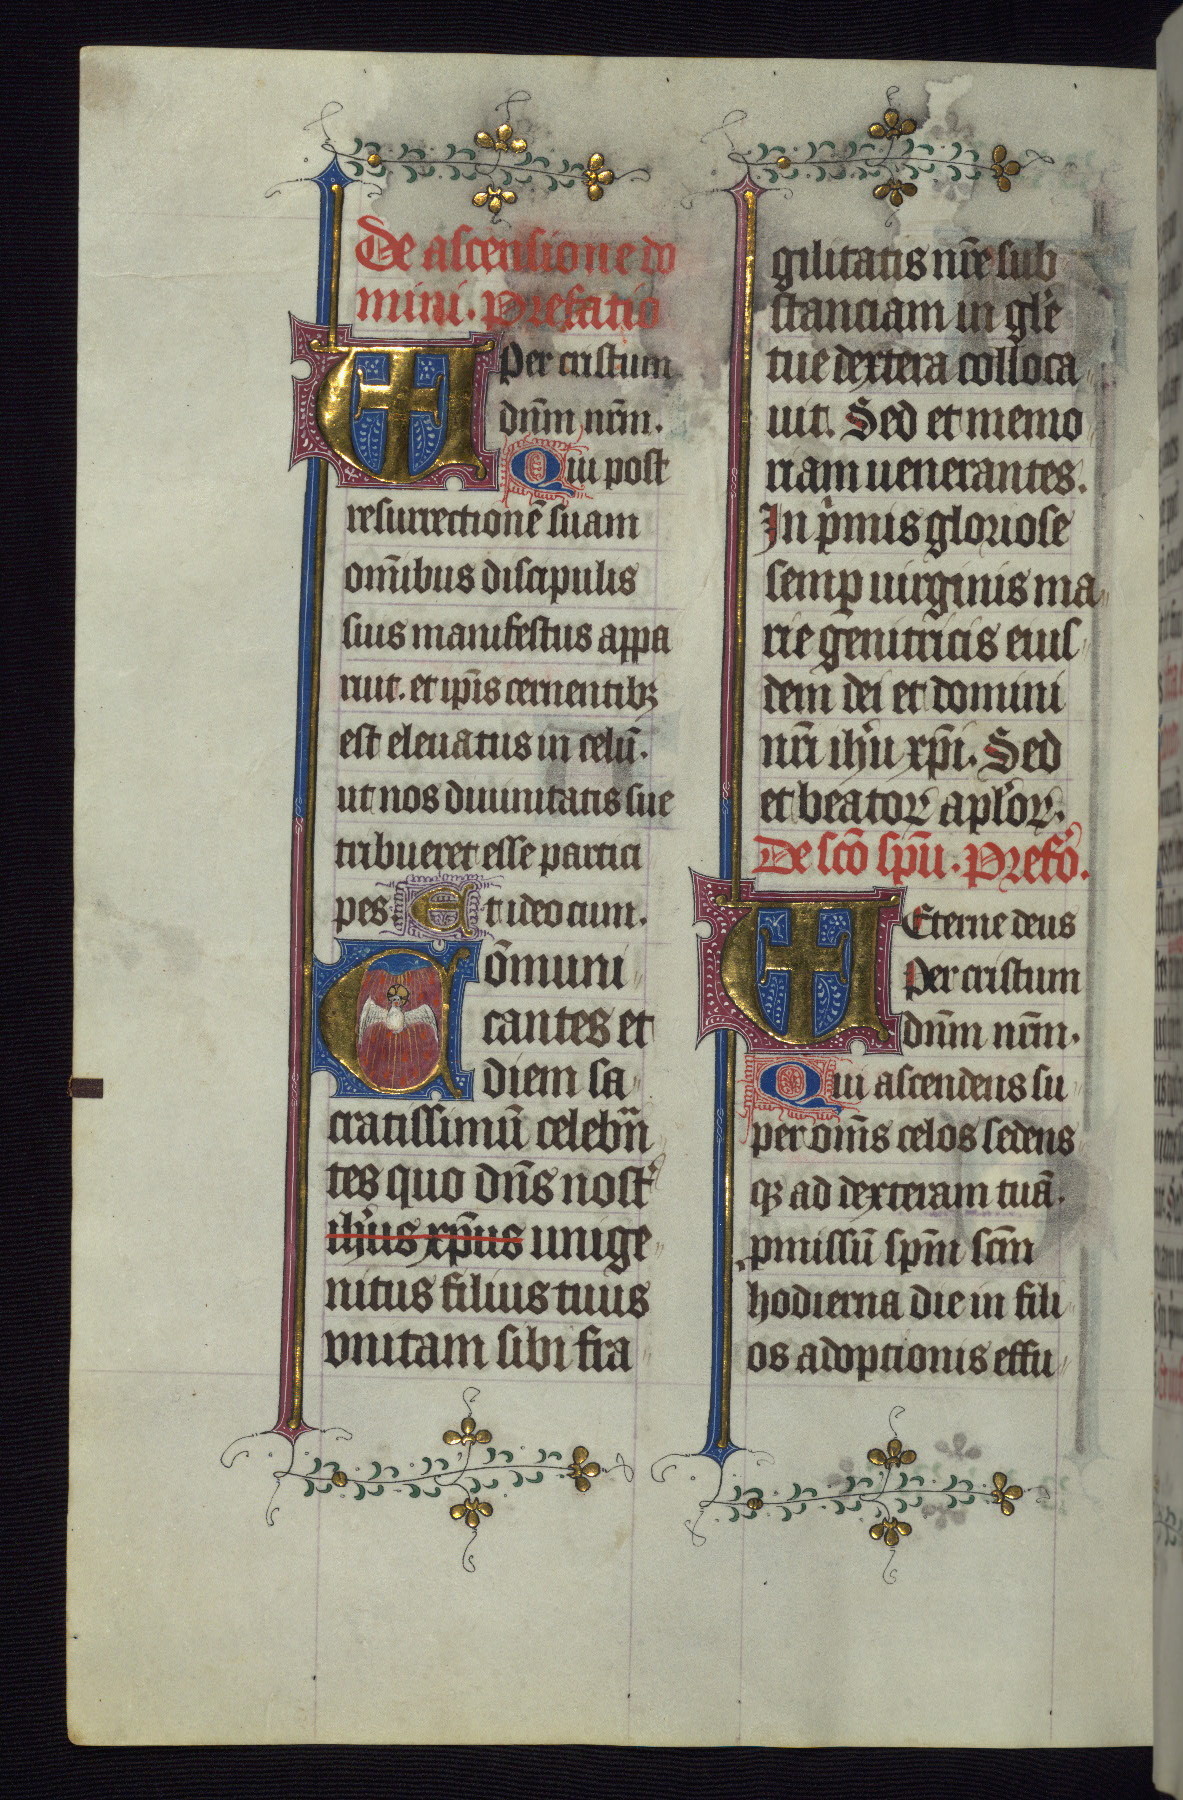 De ascensione do
mini. Prefatio
Per cristum
dnm̄ nrm̄.
Qui post
resurrectionē suam
om̄ibus discipulis
suis manifestus appa
ruit. et ip̄is cernentibꝫ
est eleuatus in celū.
ut nos diuinitatis sue
tribueret esse partici
pes Et ideo cum.
Cōmuni
cantes et
diem sa
cratissimū celebr̄n
tes quo dn̄s nost͛
ih̓us xp̄us unige
nitus filius tuus
vnitam sibi fra
gilitatis nr̄e sub
stanciam in gl̓e
tue dextera colloca
uit. Sed et memo
riam uenerantes.
In p̓mis gloriose
semꝑ uirginis ma
rie genitricis eius
dem dei et domini
nr̄i ih̓u xp̄i. Sed
et beatoꝝ apl̓oꝝ.
De scō sp̄u. Prefō.
Eterne deus
Per cristum
dnm̄ nrm̄.
Qui ascendens su
per om̄s celos sedens
qꝫ ad dexteram tuā.
ꝓmissū sp̄m scm̄
hodierna die in fili
os adoptionis effu